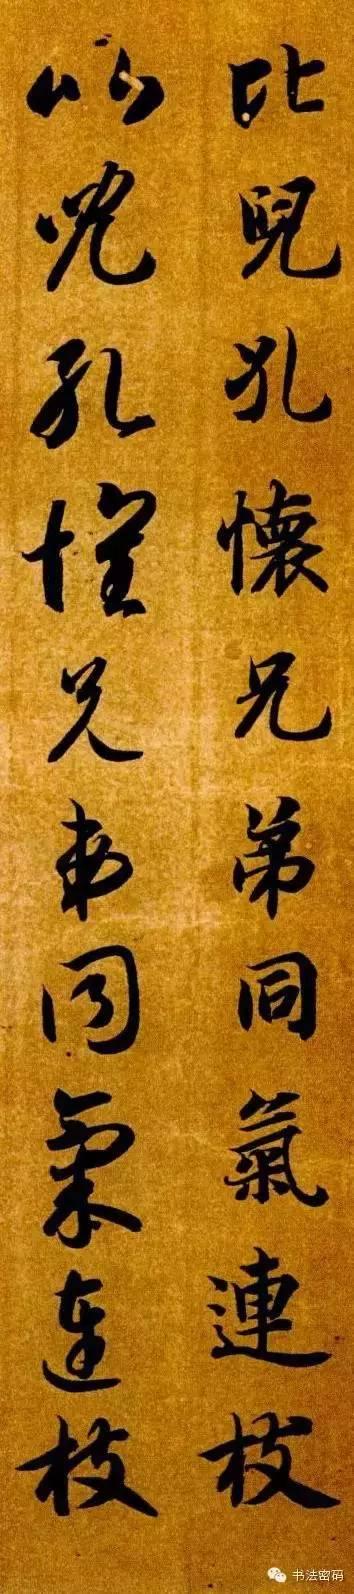 比兒孔懷兄弟同氣連枝
比兒孔懷兄弟同氣連枝
书法密码